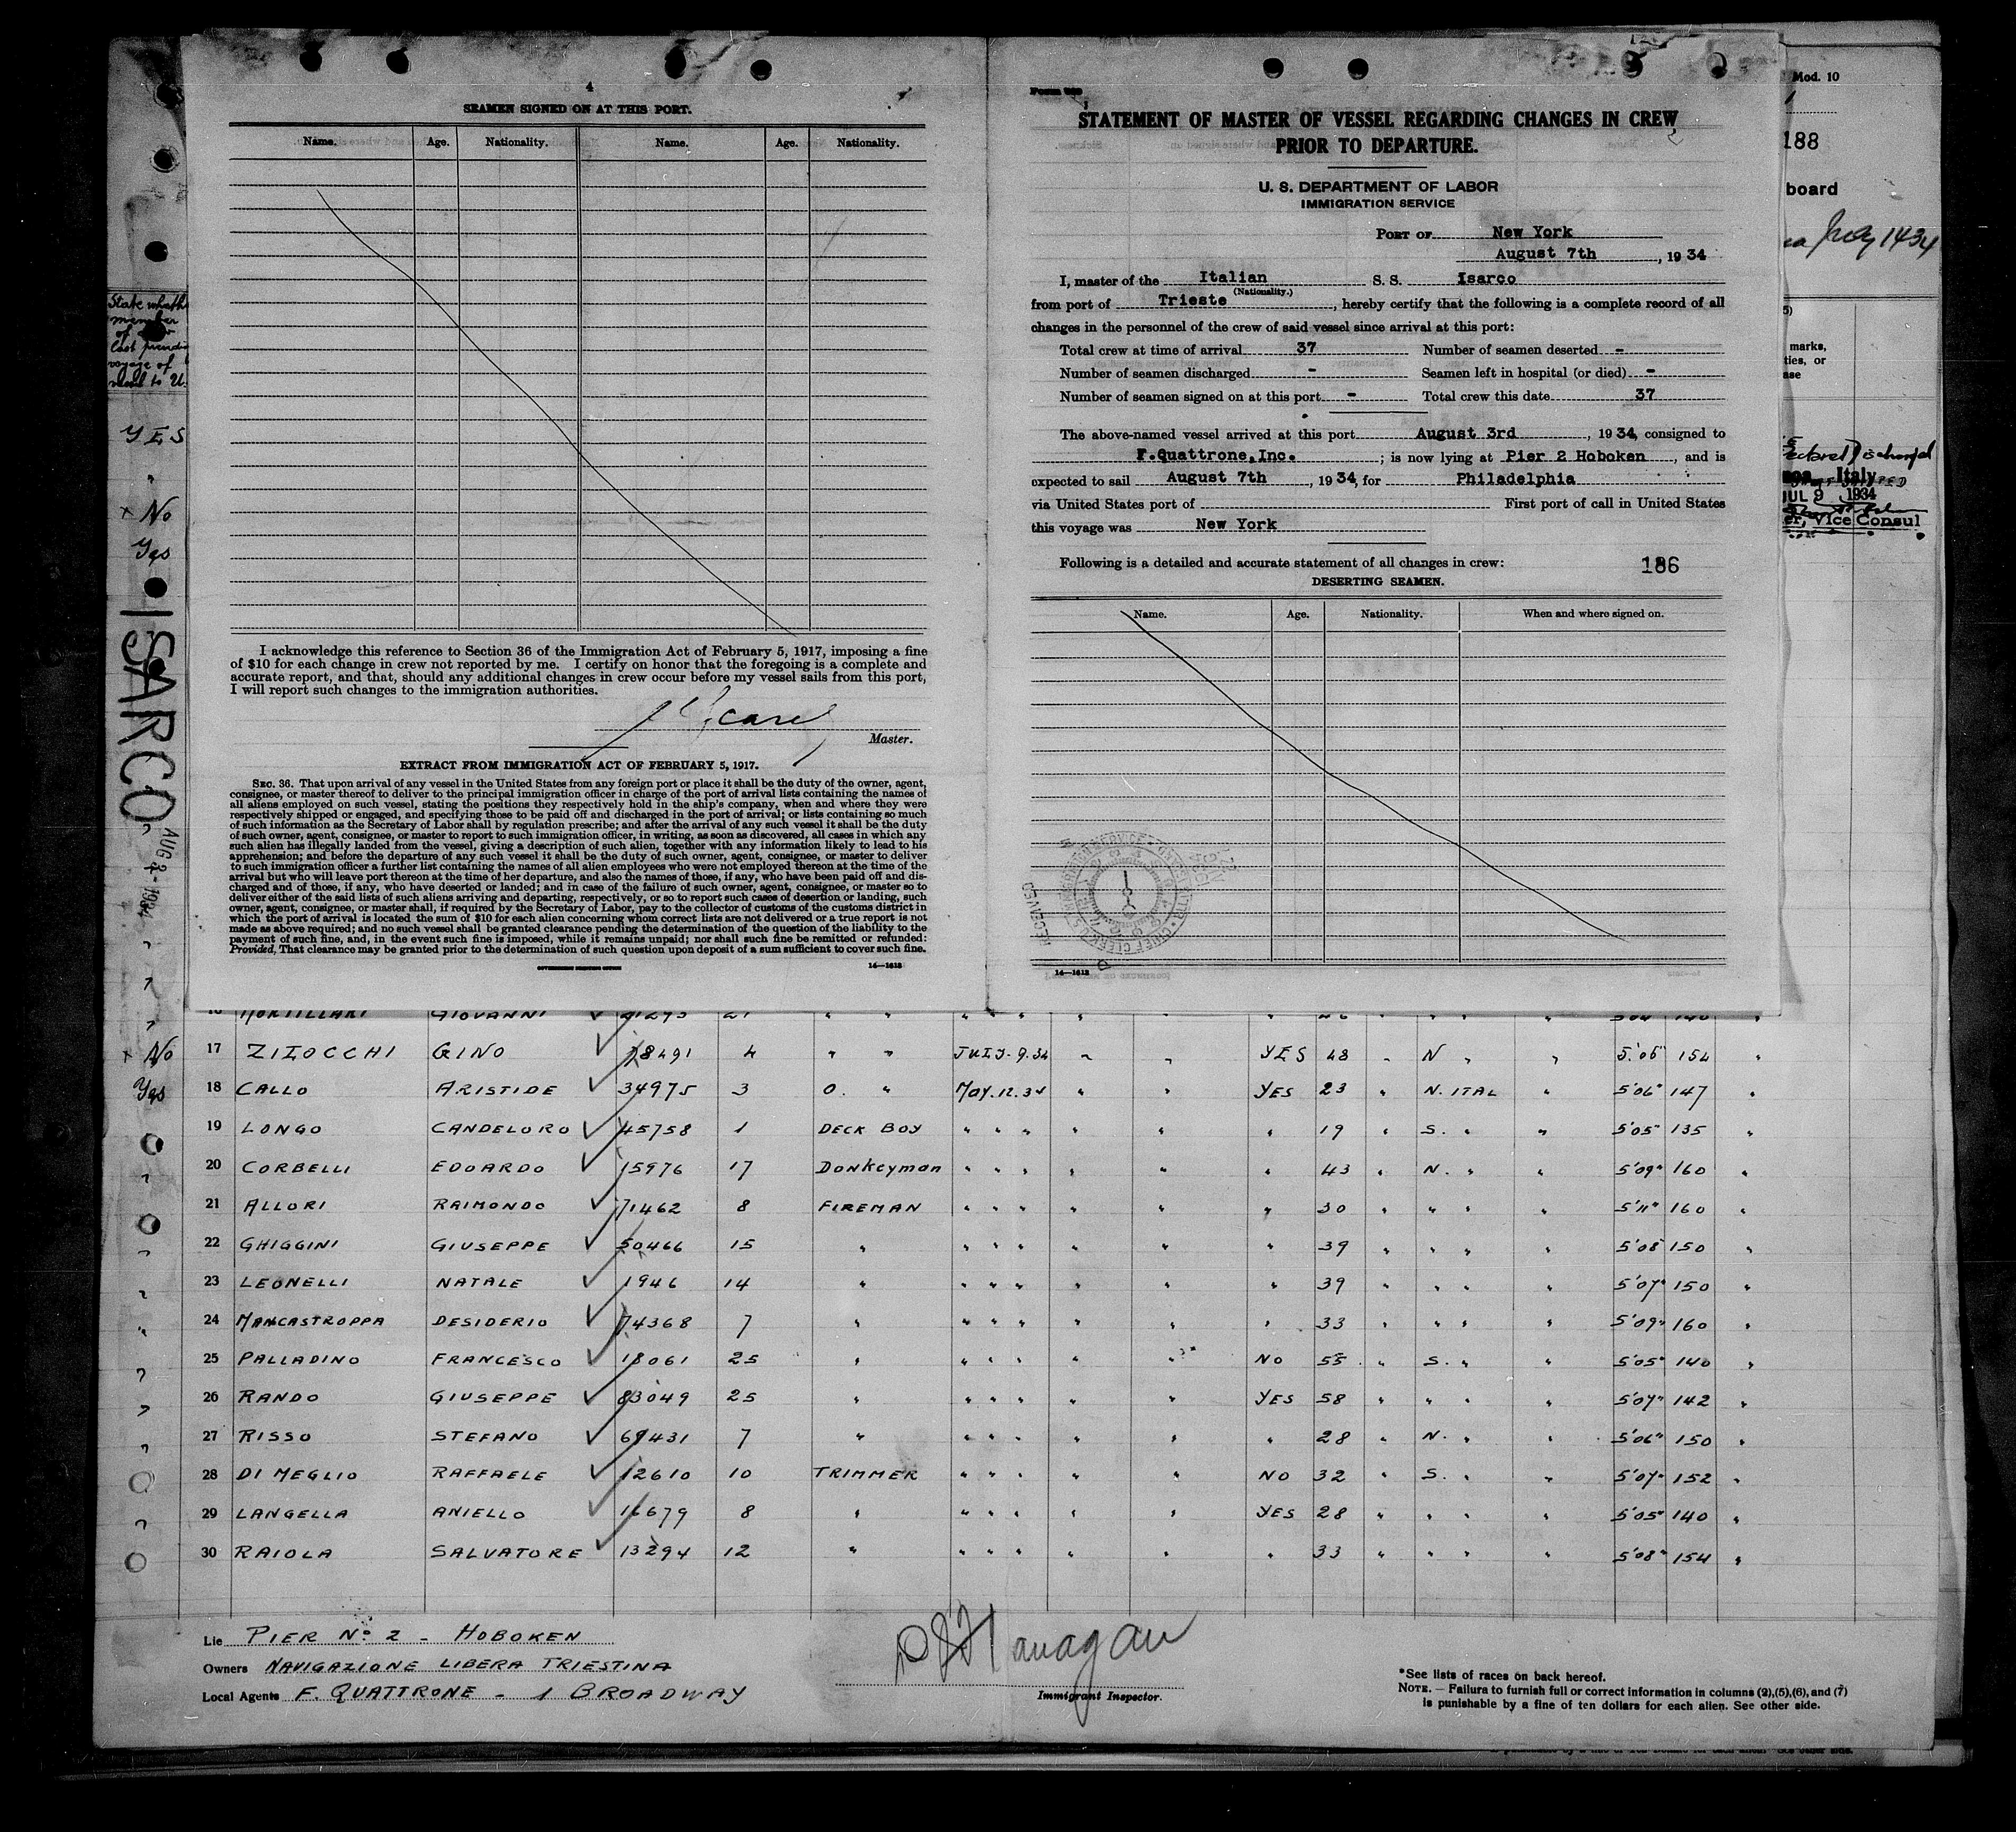 4
SEAMEN SIGNED ON AT THIS PORT.
Name. Age. Nationality. Name. Age. Nationality.
I acknowledge this reference to Section 36 of the Immigration Act of February 5, 1917, imposing a fine
of $10 for each change in crew not reported by me. I certify on honor that the foregoing is a complete and
accurate report, and that, should any additional changes in crew occur before my vessel sails from this port,
I will report such changes to the immigration authorities.
Master.
EXTRACT FROM IMMIGRATION ACT OF FEBRUARY 5, 1917.
SEC. 36. That upon arrival of any vessel in the United States from any foreign port or place it shall be the duty of the owner, agent,
consignee, or master thereof to deliver to the principal immigration officer in charge of the port of arrival lists containing the names of
all aliens employed on such vessel, stating the positions they respectively hold in the ship's company, when and where they were
respectively shipped or engaged, and specifying those to be paid off and discharged in the port of arrival; or lists containing so much
of such information as the Secretary of Labor shall by regulation prescribe; and after the arrival of any such vessel it shall be the duty
of such owner, agent, consignee, or master to report to such immigration officer, in writing, as soon as discovered, all cases in which any
such alien has illegally landed from the vessel, giving a description of such alien, together with any information likely to lead to his
apprehension; and before the departure of any such vessel it shall be the duty of such owner, agent, consignee, or master to deliver
to such immigration officer a further list containing the names of all alien employees who were not employed thereon at the time of the
arrival but who will leave port thereon at the time of her departure, and also the names of those, if any, who have been paid off and dis-
charged and of those, if any, who have deserted or landed; and in case of the failure of such owner, agent, consignee, or master so to
deliver either of the said lists of such aliens arriving and departing, respectively, or so to report such cases of desertion or landing, such
owner, agent, consignee, or master shall, if required by the Secretary of Labor, pay to the collector of customs of the customs district in
which the port of arrival is located the sum of $10 for each alien concerning whom correct lists are not delivered or a true report is not
made as above required; and no such vessel shall be granted clearance pending the determination of the question of the liability to the
payment of such fine, and, in the event such fine is imposed, while it remains unpaid; nor shall such fine be remitted or refunded:
Provided, That clearance may be granted prior to the determination of such question upon deposit of a sum sufficient to cover such fine.
GOVERNMENT PRINTING OFFICE 14—1613
STATEMENT OF MASTER OF VESSEL REGARDING CHANGES IN CREW
PRIOR TO DEPARTURE.
U. S. DEPARTMENT OF LABOR
IMMIGRATION SERVICE
PORT OF New York
August 7th, 1934
I, master of the Italian S. S. Isarco
(Nationality.)
from port of Trieste, hereby certify that the following is a complete record of all
changes in the personnel of the crew of said vessel since arrival at this port:
Total crew at time of arrival 37 Number of seamen deserted -
Number of seamen discharged - Seamen left in hospital (or died) -
Number of seamen signed on at this port - Total crew this date 37
The above-named vessel arrived at this port August 3rd, 1934, consigned to
F.Quattrone,Inc.; is now lying at Pier 2 Hoboken, and is
expected to sail August 7th, 1934, for Philadelphia
via United States port of First port of call in United States
this voyage was New York
Following is a detailed and accurate statement of all changes in crew: 186
DESERTING SEAMEN.
Name. Age. Nationality. When and where signed on.
RECEIVED
14—1613
Mod. 10
188
board
July 1434
marks,
ties, or
ase
Italy
JUL 9 1934
Vice Consul
State whether
member
of crew
last
voyage of
YES
"
x No
Yes
ISARCO
AUG 3 - 1934
MORTILLARI GIOVANNI 21
x No 17 ZIIOCCHI GINO 78491 4 " " JULY. 9. 34 " " YES 48 " N " " 5'05" 154 "
Yes 18 CALLO ARISTIDE 34975 3 O. " May. 12. 34 " " YES 23 " N. ITAL " 5'06" 147 "
19 LONGO CANDELORO 45758 1 DECK BOY " " " " " " 19 " S. " " 5'05" 135 "
20 CORBELLI EDOARDO 15976 17 Donkeyman " " " " " " 43 " N. " " 5'09" 160 "
21 ALLORI RAIMONDO 71462 8 FIREMAN " " " " " " 30 " " " " 5'11" 160 "
22 GHIGGINI GIUSEPPE 50466 15 " " " " " " " 39 " " " " 5'08 150 "
23 LEONELLI NATALE 1946 14 " " " " " " " 39 " " " " 5'07" 150 "
24 MANCASTROPPA DESIDERIO 74368 7 " " " " " " " 33 " " " " 5'09" 160 "
25 PALLADINO FRANCESCO 18061 25 " " " " " " NO 55 " S. " " 5'05" 140 "
26 RANDO GIUSEPPE 83049 25 " " " " " " YES 58 " " " " 5'07" 142 "
27 RISSO STEFANO 69431 7 " " " " " " " 28 " N. " " 5'06" 150 "
28 DI MEGLIO RAFFAELE 12610 10 TRIMMER " " " " " NO 32 " S. " " 5'07" 152 "
29 LANGELLA ANIELLO 16679 8 " " " " " " YES 28 " " " " 5'05" 140 "
30 RAIOLA SALVATORE 13294 12 " " " " " " " 33 " " " " 5'08" 154 "
Lie PIER No 2 - HOBOKEN
Owners NAVIGAZIONE LIBERA TRIESTINA
Local Agents F. QUATTRONE - 1 BROADWAY
Flanagan
Immigrant Inspector.
*See lists of races on back hereof.
NOTE. — Failura to furnish full or correct information in columns (2),(5),(6), and (7)
is punishable by a fine of ten dollars for each alien. See other side.